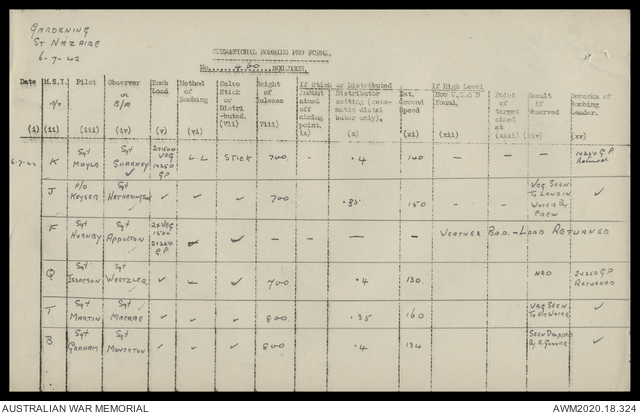 GARDENING
ST NAZAIRE
6-7-42
OPERATIONAL BOMBING PRO FORMA.
No. 460 SQUADRON.
Date M.S.I. Pilot Observer or B/A Bomb Load Method of Bombing Salvo Stick or Distri -buted. Height of Release If Stick or Distributed Ind. Ground Speed If High Level Point of target aimed at Result if Observed Remarks of Bombing Leader.
Distributor setting (auto-matic distri butor only).
found.
(i) (ii) (iii) (iv) (v) (vi) (vii) (viii) (ix) (x) (xi) (xii) (xiii) (xiv) (xv)
6-7-42 K Sgt MOYLE Sgt SHARKEY 2x1500 VEG 14250 GP L L STICK 700 — .4 140 — — — 14250 G.P Returned
J P/O KEYSER Sgt HETHERINGTON ✓ ✓ ✓ 700 .35 150 — — VEG SEEN TO LAND IN WATER BY CREW ✓
F Sgt HORNBY Sgt APPLETON 2x VEG 1500 2x250 G.P. ✓ ✓ — — — — WEATHER BAD. - LOAD RETURNED
Q Sgt ISAACSON Sgt WERTZLER ✓ ✓ ✓ 700 .4 130 NRO 2x250 G.P RETURNED
T Sgt MARTIN Sgt MACRAE ✓ ✓ ✓ 800 .35 160 VEG SEEN TO HIT WATER ✓
B Sgt GRAHAM Sgt MONCKTON ✓ ✓ ✓ 800 .4 134 SEEN DROPPED BY R. GUNNER ✓
AUSTRALIAN WAR MEMORIAL
AWM2020.18.324